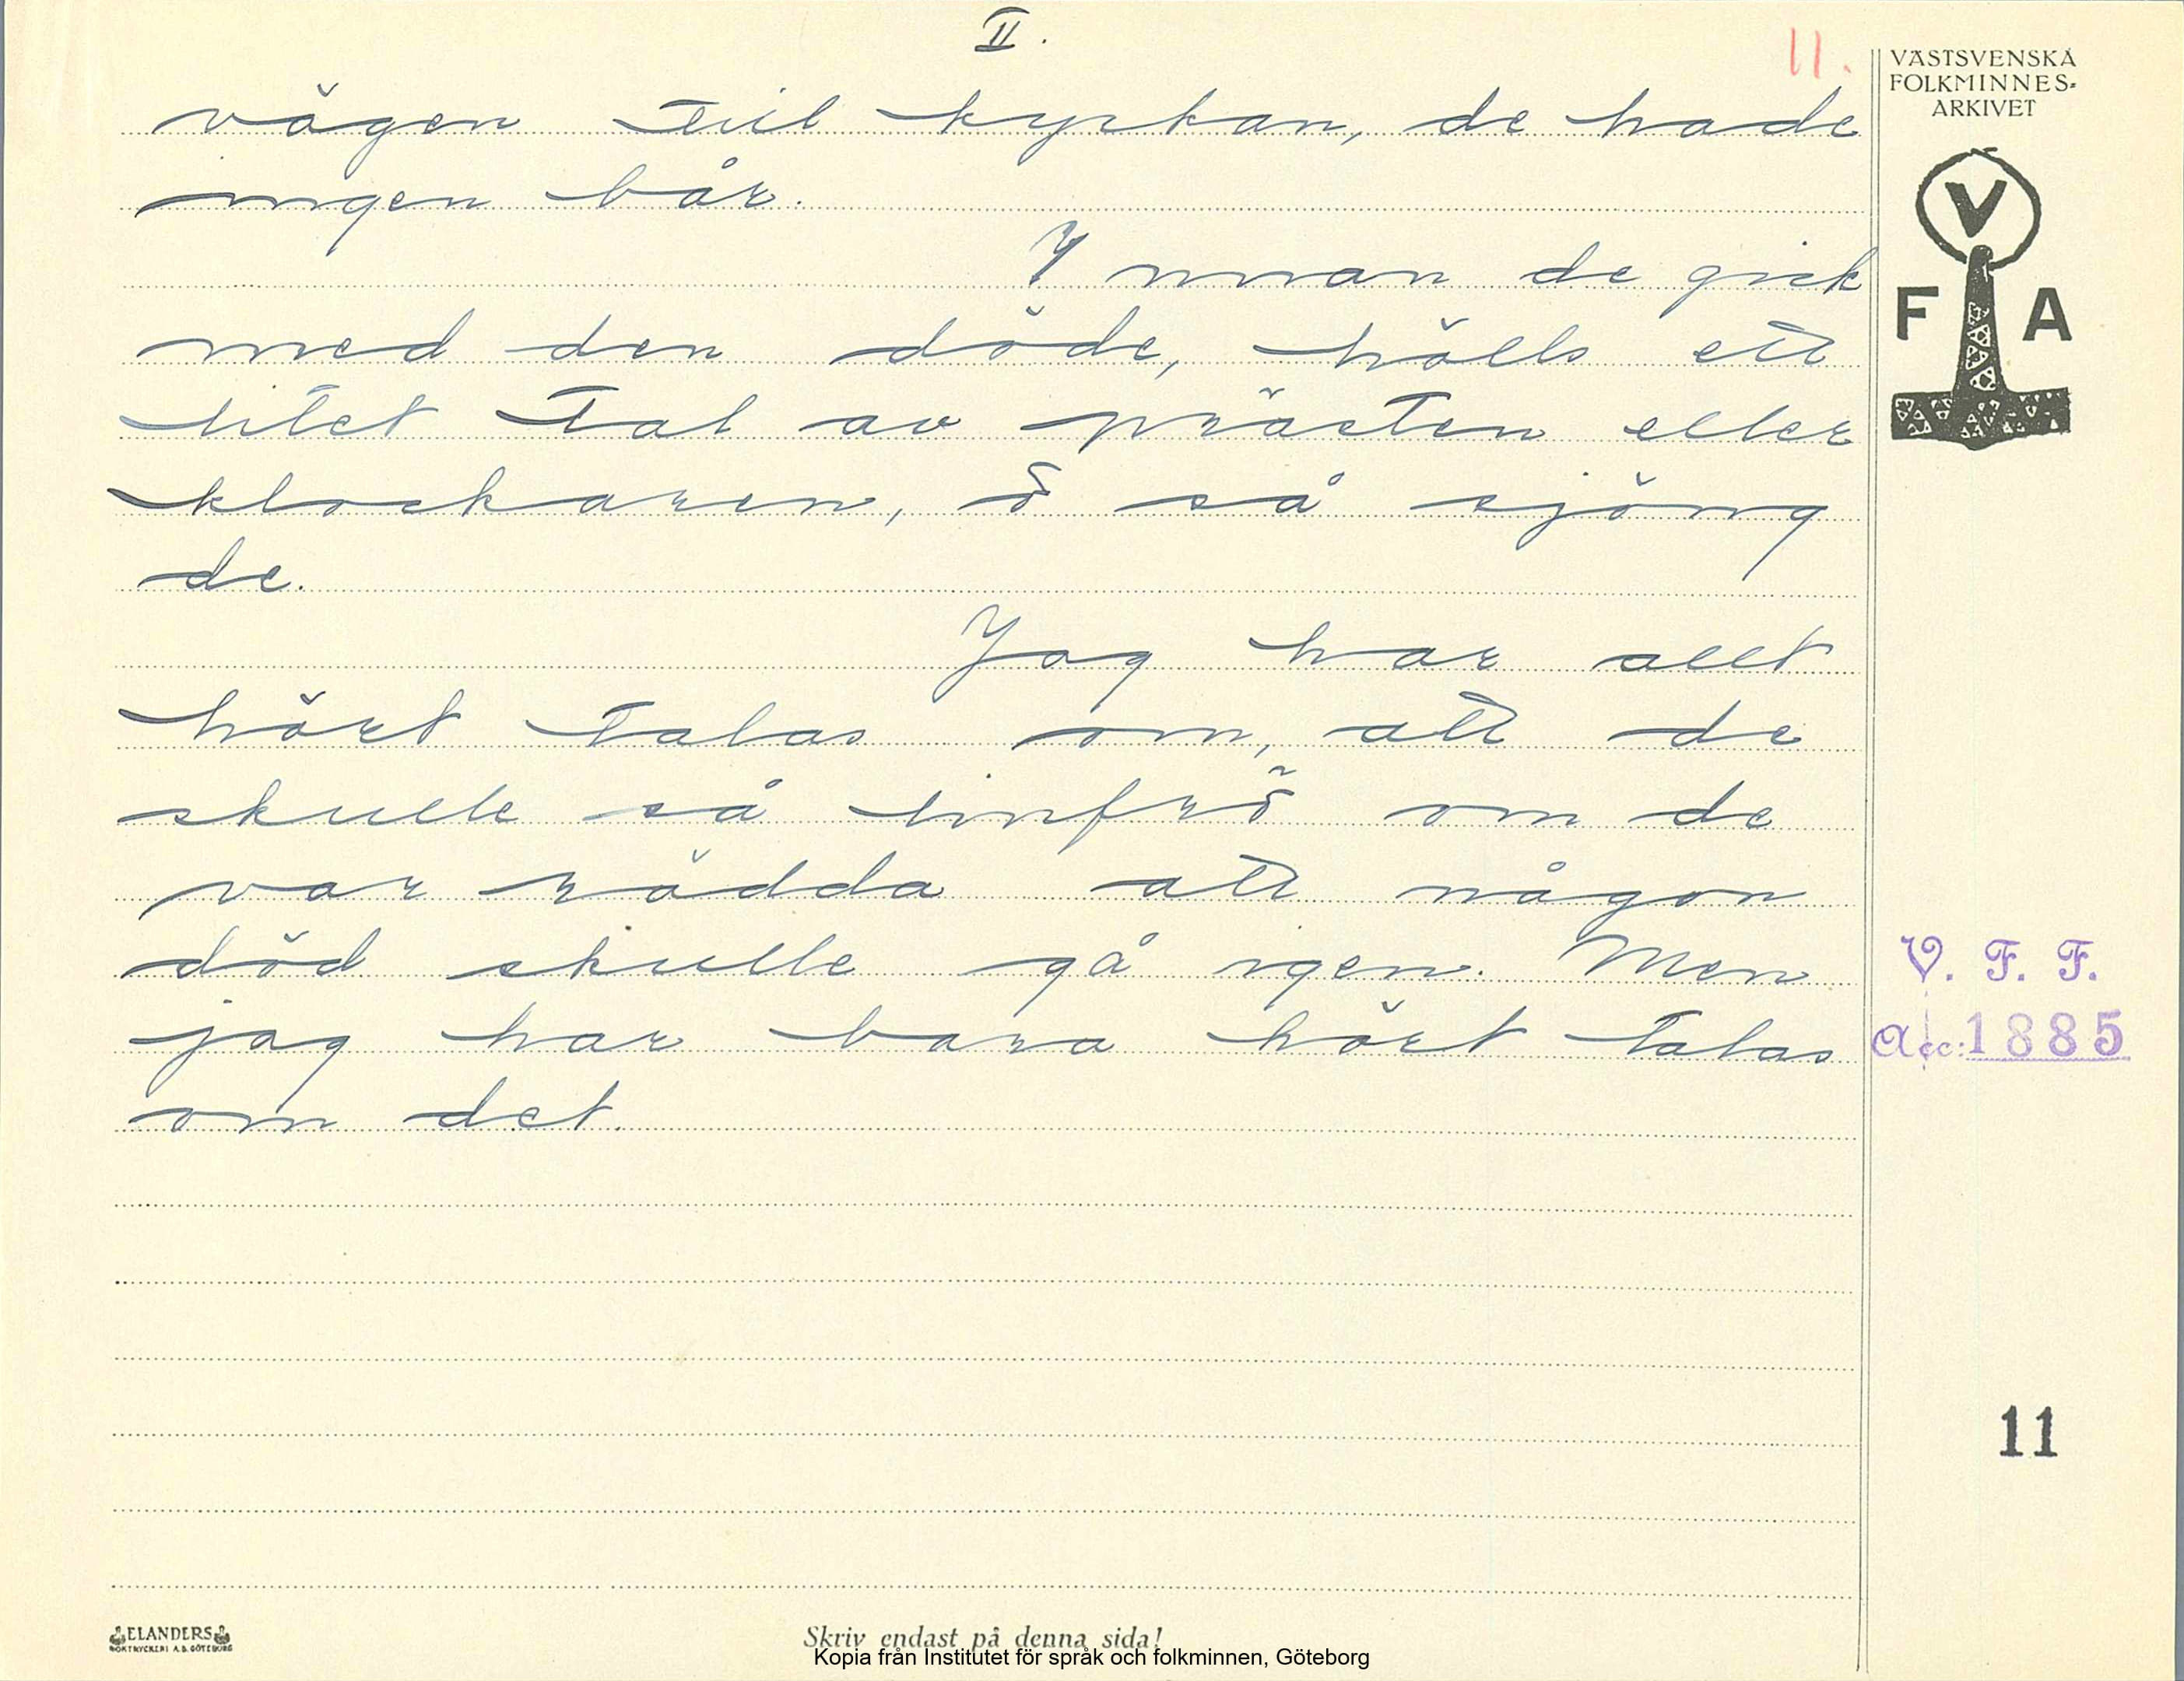 II.
11.
VÄSTSVENSKA
FOLKMINNES-
ARKIVET
V
F A
vägen till kyrkan, de hade
ingen bår.
Innan de gick
med den döde, hölls ett
litet tal av prästen eller
klockaren, ŏ så sjöng
de.
Jag har allt
hört talas om, att de
skulle så linfrö om de
var rädda att någon
död skulle gå igen. Men
jag har bara hört talas
om det.
V. F. F.
Acc: 1885
11
ELANDERS
BOKTRYCKERI A.B. GÖTEBORG
Skriv endast på denna sida!
Kopia från Institutet för språk och folkminnen, Göteborg